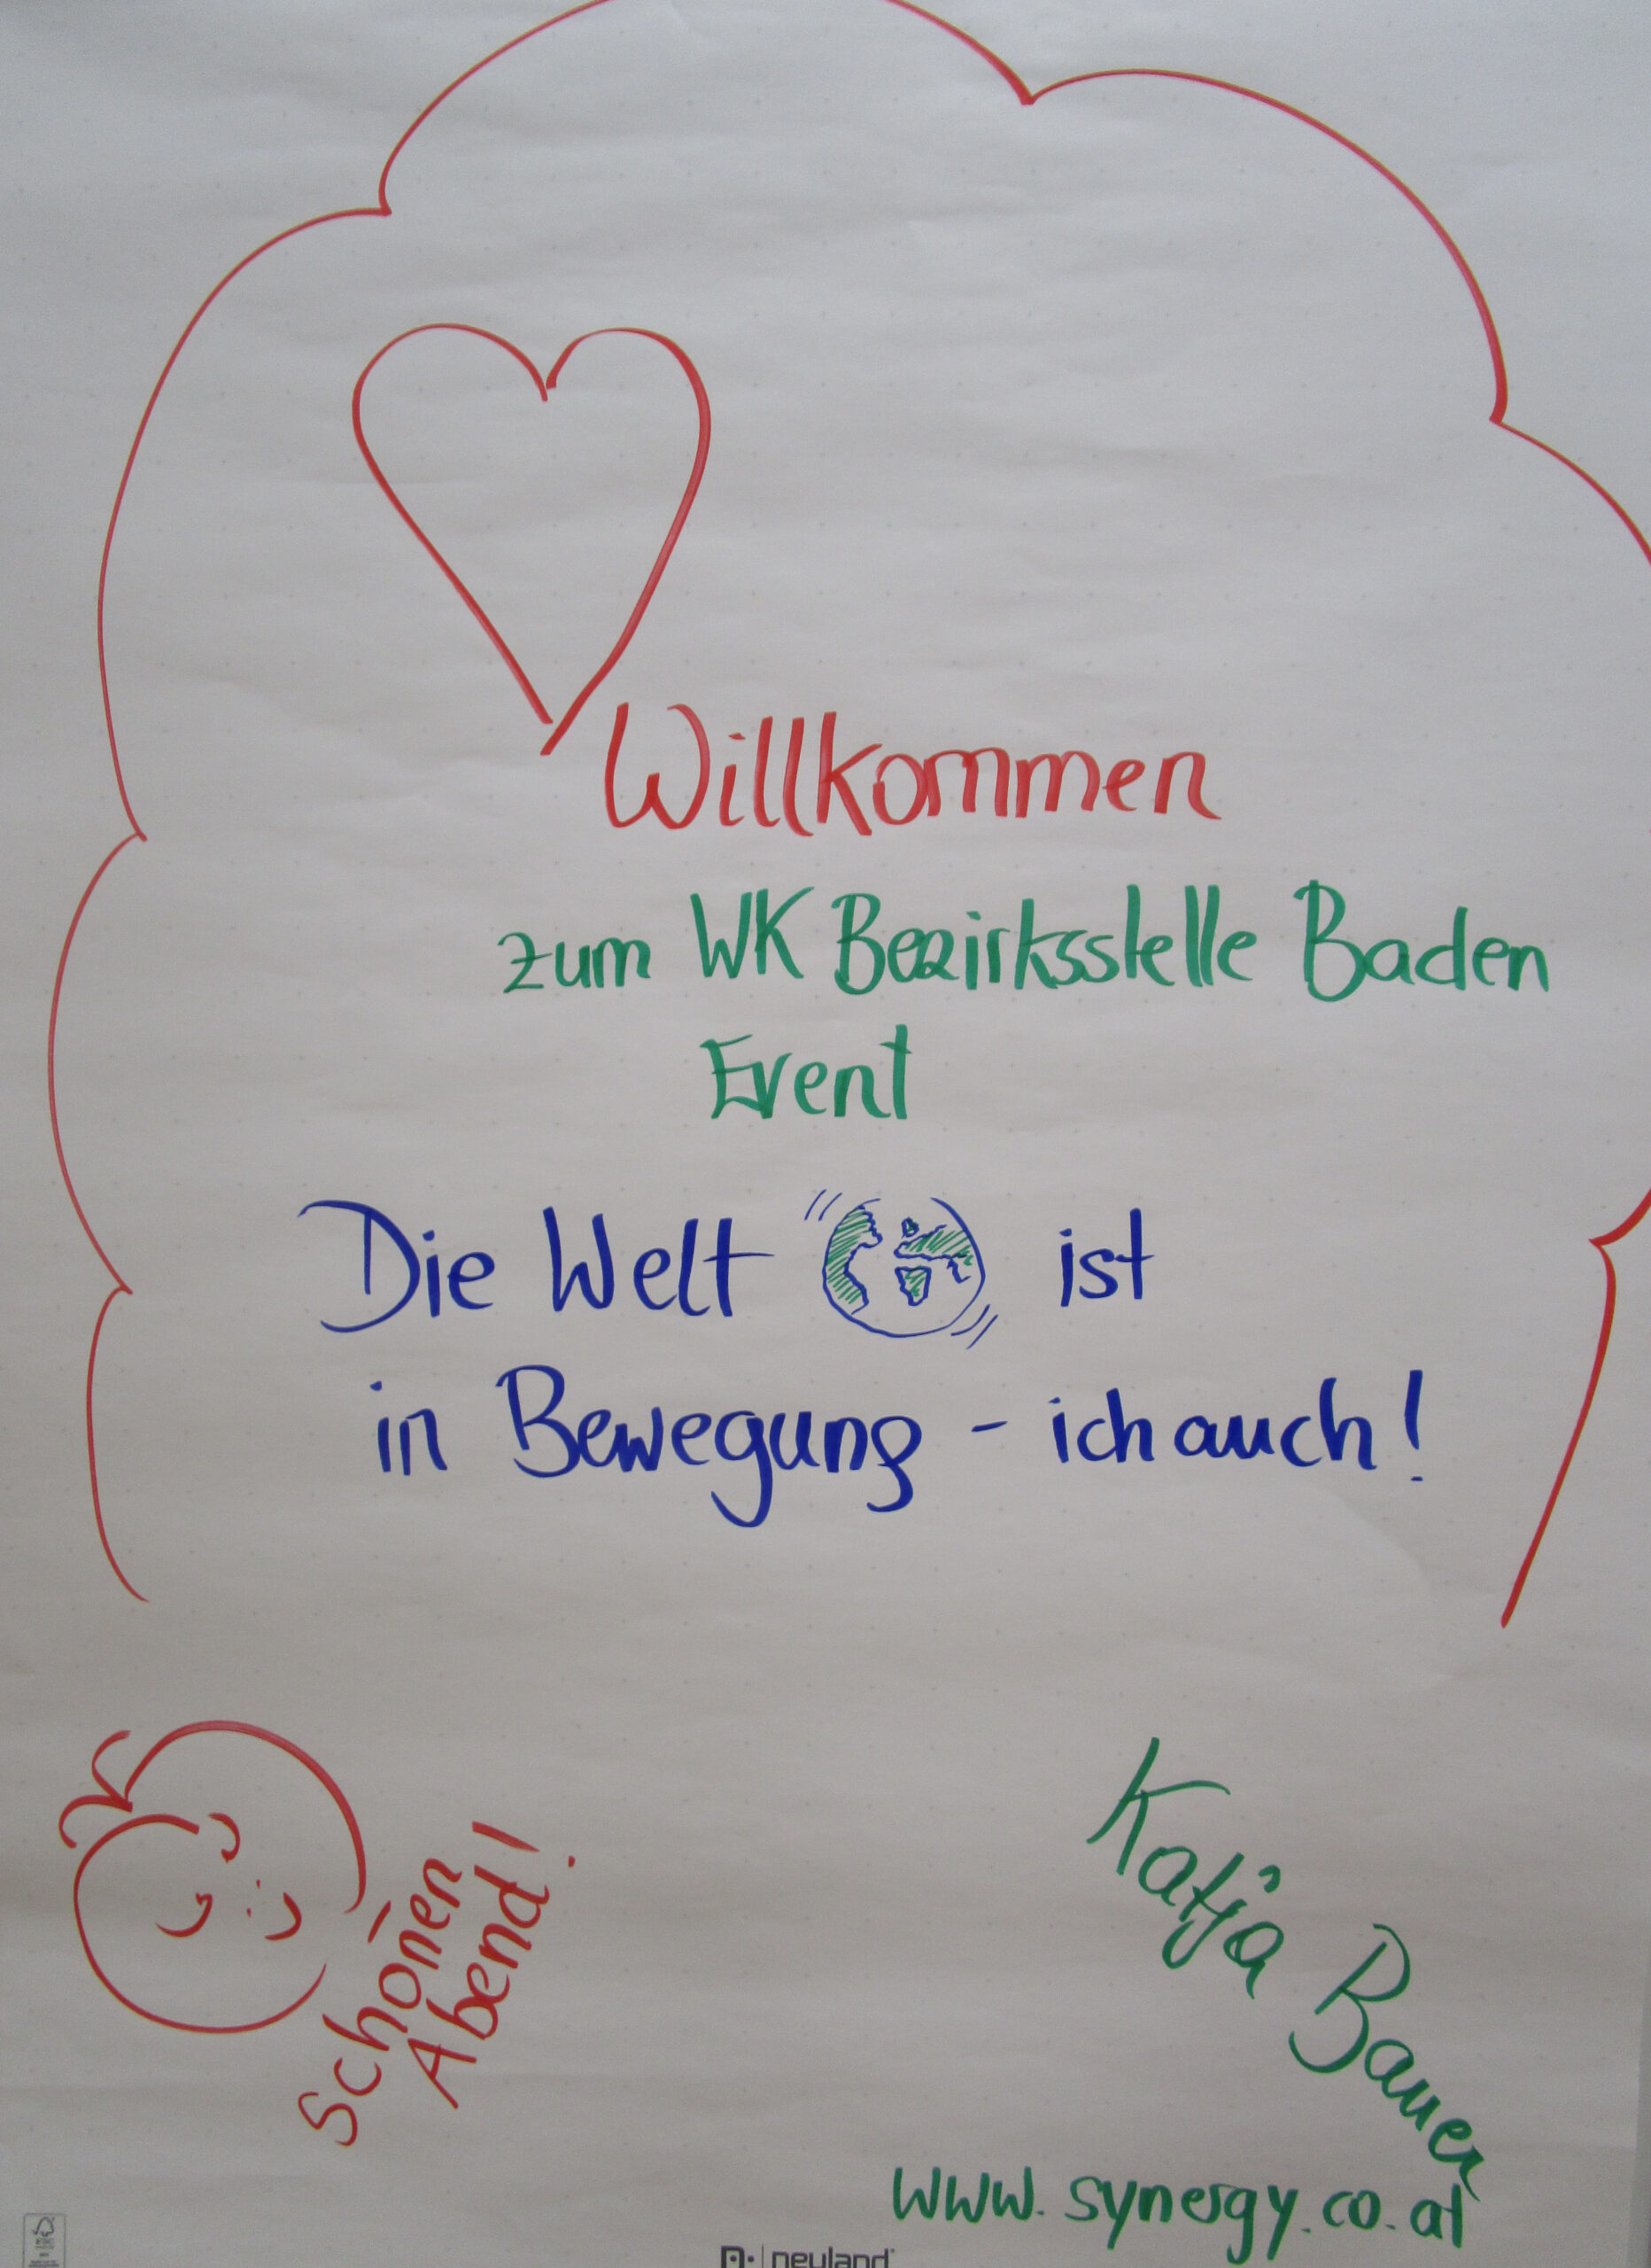 Willkommen
zum WK Bezirksstelle Baden
Event
Die Welt ist
in Bewegung - ich auch!
Schönen
Abend!
Katja Bauer
www.synergy.co.at
neuland